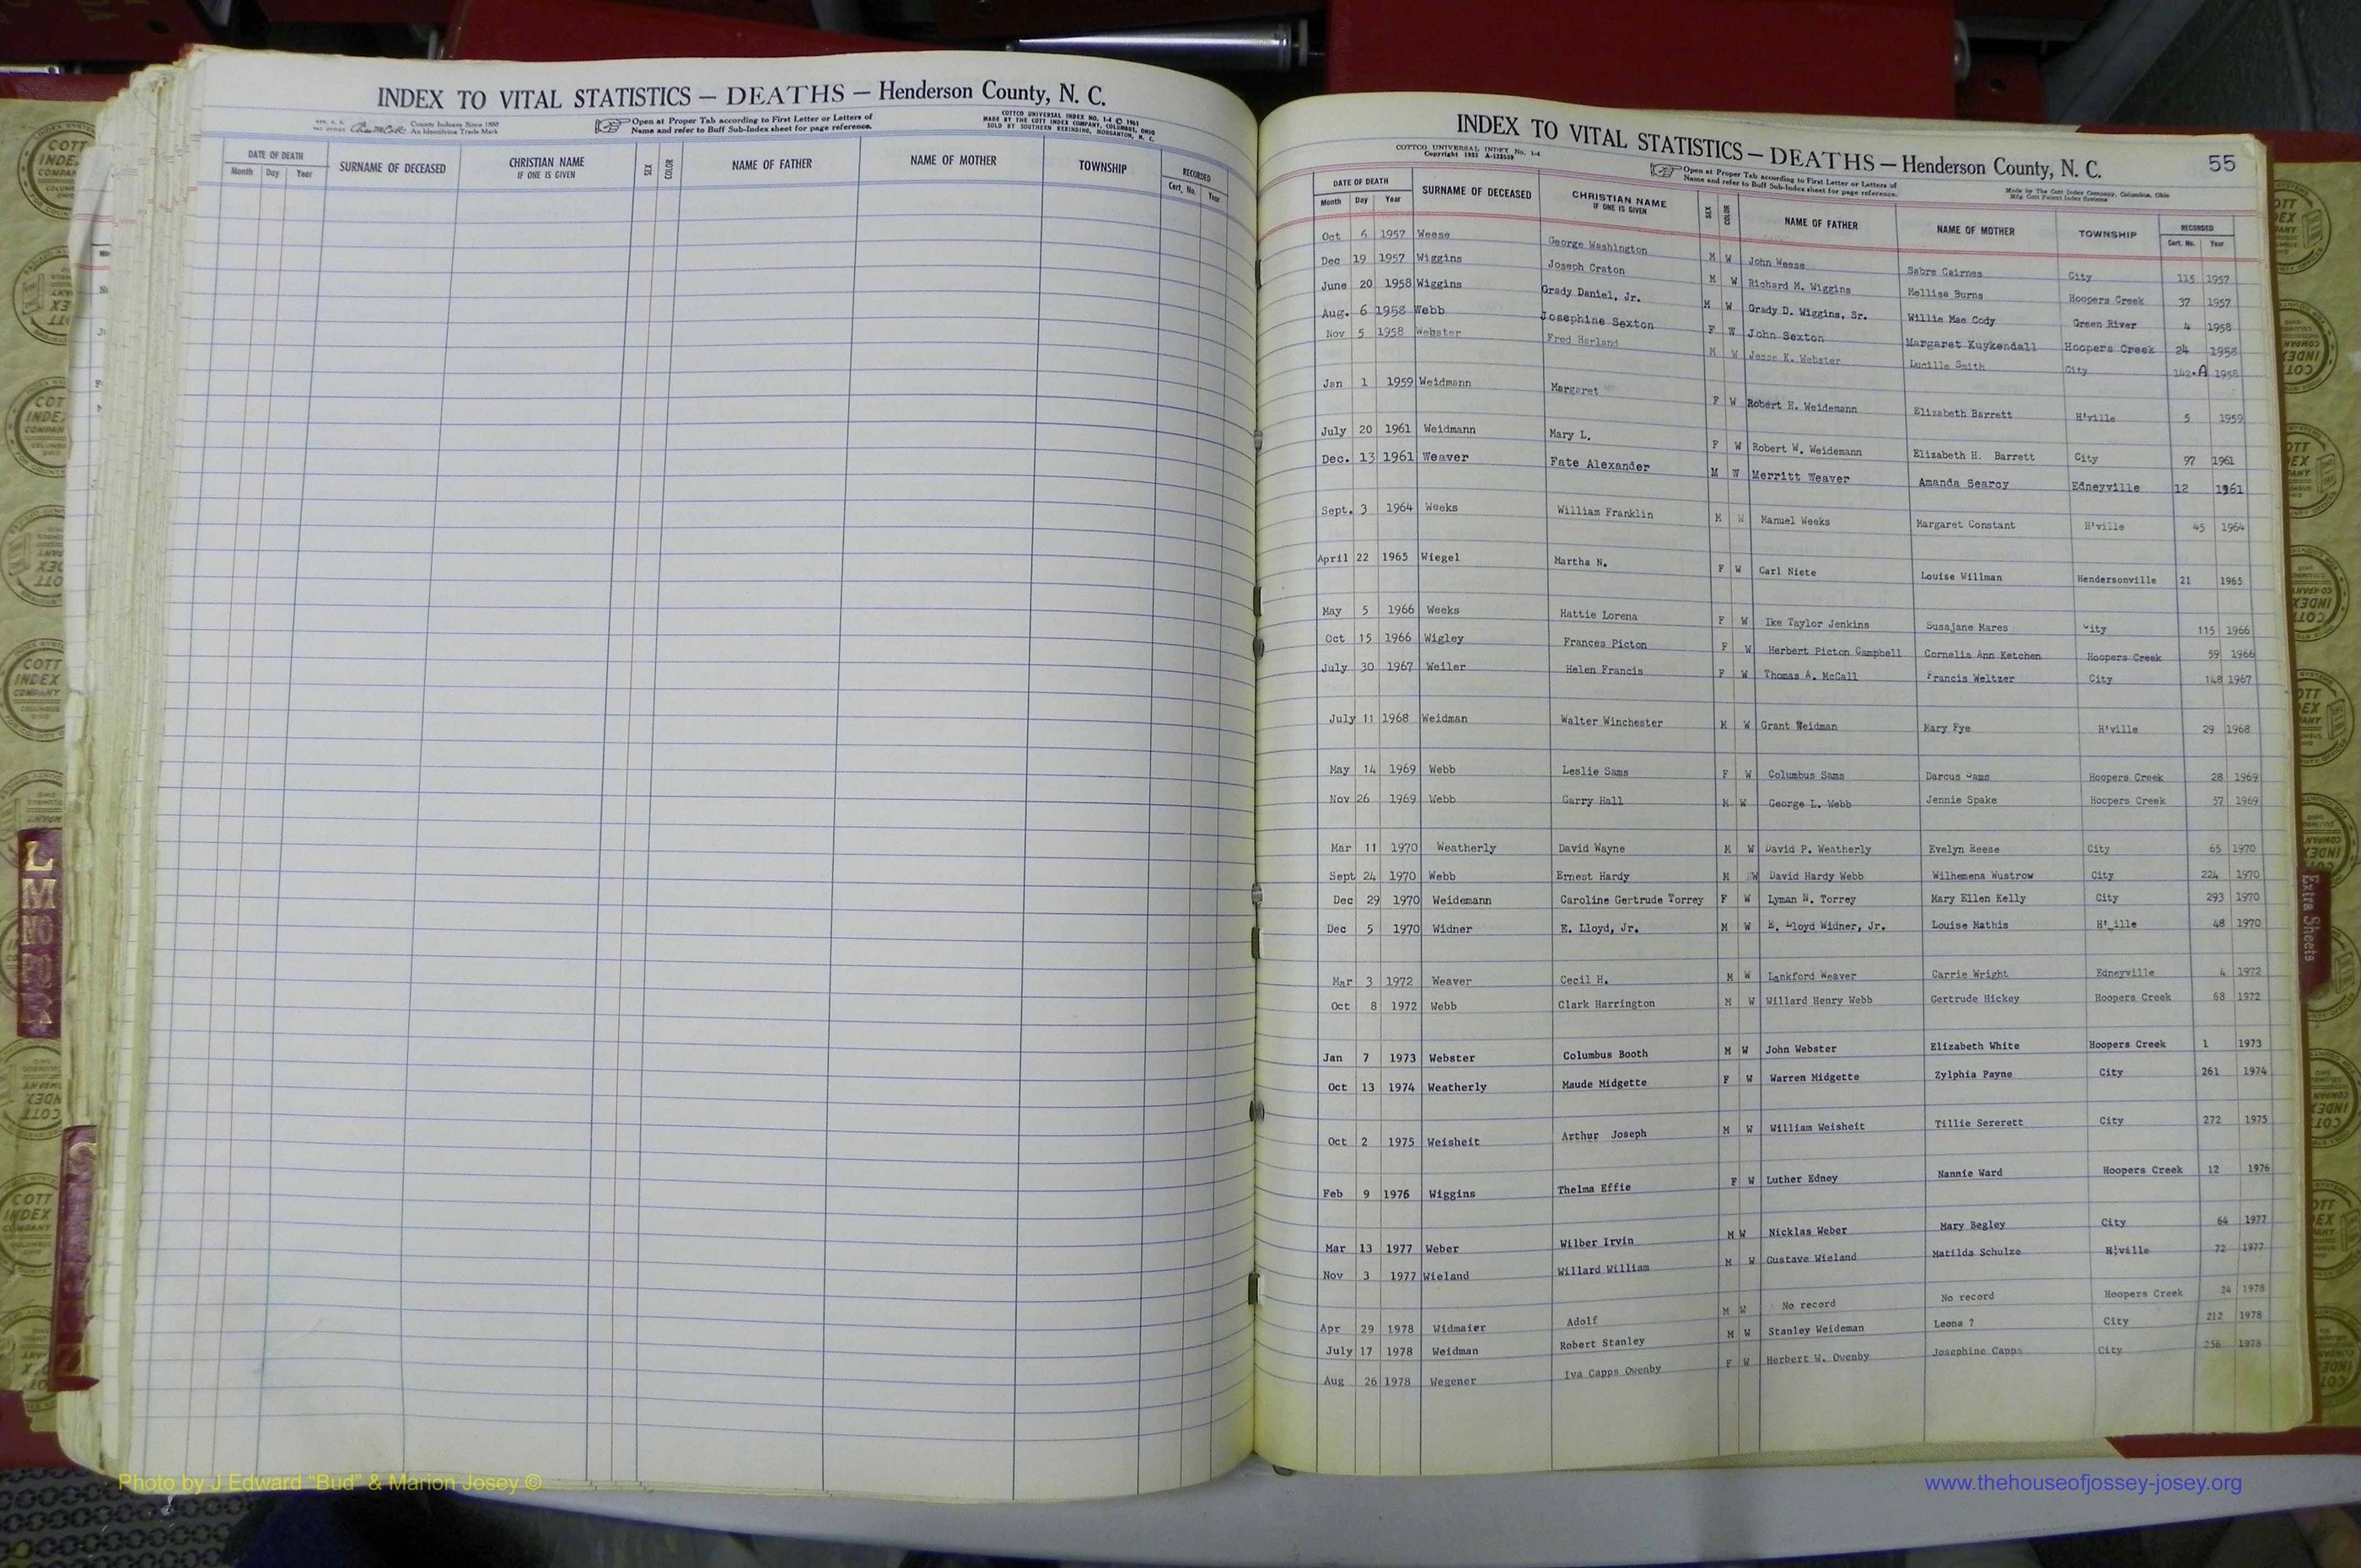 INDEX TO VITAL STATISTICS — DEATHS — Henderson County, N. C.
County Indexes Since 1888
An Identifying Trade Mark
Open at Proper Tab according to First Letter or Letters of
Name and refer to Buff Sub-Index sheet for page reference.
COTTCO UNIVERSAL INDEX NO. 1-4 © 1961
MADE BY THE COTT INDEX COMPANY, COLUMBUS, OHIO
SOLD BY SOUTHERN REBINDING, MORGANTON, N. C.
DATE OF DEATH SURNAME OF DECEASED CHRISTIAN NAME IF ONE IS GIVEN SEX COLOR NAME OF FATHER NAME OF MOTHER TOWNSHIP RECORDED
Month Day Year Cert. No. Year
INDEX TO VITAL STATISTICS — DEATHS — Henderson County, N. C. 55
COTTCO UNIVERSAL INDEX No. 1-4
Open at Proper Tab according to First Letter or Letters of
Name and refer to Buff Sub-Index sheet for page reference.
Made by The Cott Index Company, Columbus, Ohio
Mfg. Cott Patent Index Systems
DATE OF DEATH SURNAME OF DECEASED CHRISTIAN NAME IF ONE IS GIVEN SEX COLOR NAME OF FATHER NAME OF MOTHER TOWNSHIP RECORDED
Month Day Year Cert. No. Year
Oct 6 1957 Weese George Washington M W John Weese Sabre Cairnes City 115 1957
Dec 19 1957 Wiggins Joseph Craton M W Richard M. Wiggins Mellisa Burns Hoopers Creek 37 1957
June 20 1958 Wiggins Grady Daniel, Jr. M W Grady D. Wiggins, Sr. Willie Mae Cody Green River 4 1958
Aug. 6 1958 Webb Josephine Sexton F W John Sexton Margaret Kuykendall Hoopers Creek 24 1958
Nov 5 1958 Webster Fred Harland M W Jesse K. Webster Lucille Smith City 142-A 1958
Jan 1 1959 Weidmann Margaret F W Robert H. Weidemann Elizabeth Barrett H'ville 5 1959
July 20 1961 Weidmann Mary L. F W Robert W. Weidemann Elizabeth H. Barrett City 97 1961
Dec. 13 1961 Weaver Fate Alexander M W Merritt Weaver Amanda Searcy Edneyville 12 1961
Sept. 3 1964 Weeks William Franklin M W Manuel Weeks Margaret Constant H'ville 45 1964
April 22 1965 Wiegel Martha N. F W Carl Niete Louise Willman Hendersonville 21 1965
May 5 1966 Weeks Hattie Lorena F W Ike Taylor Jenkins Susajane Mares City 115 1966
Oct 15 1966 Wigley Frances Picton F W Herbert Picton Campbell Cornelia Ann Ketchen Hoopers Creek 59 1966
July 30 1967 Weiler Helen Francis F W Thomas A. McCall Francis Weltzer City 148 1967
July 11 1968 Weidman Walter Winchester M W Grant Weidman Mary Fye H'ville 29 1968
May 14 1969 Webb Leslie Sams F W Columbus Sams Darcus Sams Hoopers Creek 28 1969
Nov 26 1969 Webb Garry Hall M W George L. Webb Jennie Spake Hoopers Creek 57 1969
Mar 11 1970 Weatherly David Wayne M W David P. Weatherly Evelyn Reese City 65 1970
Sept 24 1970 Webb Ernest Hardy M W David Hardy Webb Wilhemena Wustrow City 224 1970
Dec 29 1970 Weidemann Caroline Gertrude Torrey F W Lyman N. Torrey Mary Ellen Kelly City 293 1970
Dec 5 1970 Widner E. Lloyd, Jr. M W E. Lloyd Widner, Jr. Louise Mathis H'_ille 48 1970
Mar 3 1972 Weaver Cecil H. M W Lankford Weaver Carrie Wright Edneyville 4 1972
Oct 8 1972 Webb Clark Harrington M W Willard Henry Webb Gertrude Hickey Hoopers Creek 68 1972
Jan 7 1973 Webster Columbus Booth M W John Webster Elizabeth White Hoopers Creek 1 1973
Oct 13 1974 Weatherly Maude Midgette F W Warren Midgette Zylphia Payne City 261 1974
Oct 2 1975 Weisheit Arthur Joseph M W William Weisheit Tillie Sererett City 272 1975
Feb 9 1976 Wiggins Thelma Effie F W Luther Edney Nannie Ward Hoopers Creek 12 1976
Mar 13 1977 Weber Wilber Irvin M W Nicklas Weber Mary Begley City 64 1977
Nov 3 1977 Wieland Willard William M W Gustave Wieland Matilda Schulze H'ville 72 1977
Apr 29 1978 Widmaier Adolf M W No record No record Hoopers Creek 24 1978
July 17 1978 Weidman Robert Stanley M W Stanley Weideman Leona ? City 212 1978
Aug 26 1978 Wegener Iva Capps Owenby F W Herbert W. Owenby Josephine Capps City 256 1978
Extra Sheets
L
M
Photo by J Edward “Bud” & Marion Josey ©
www.thehouseofjossey-josey.org